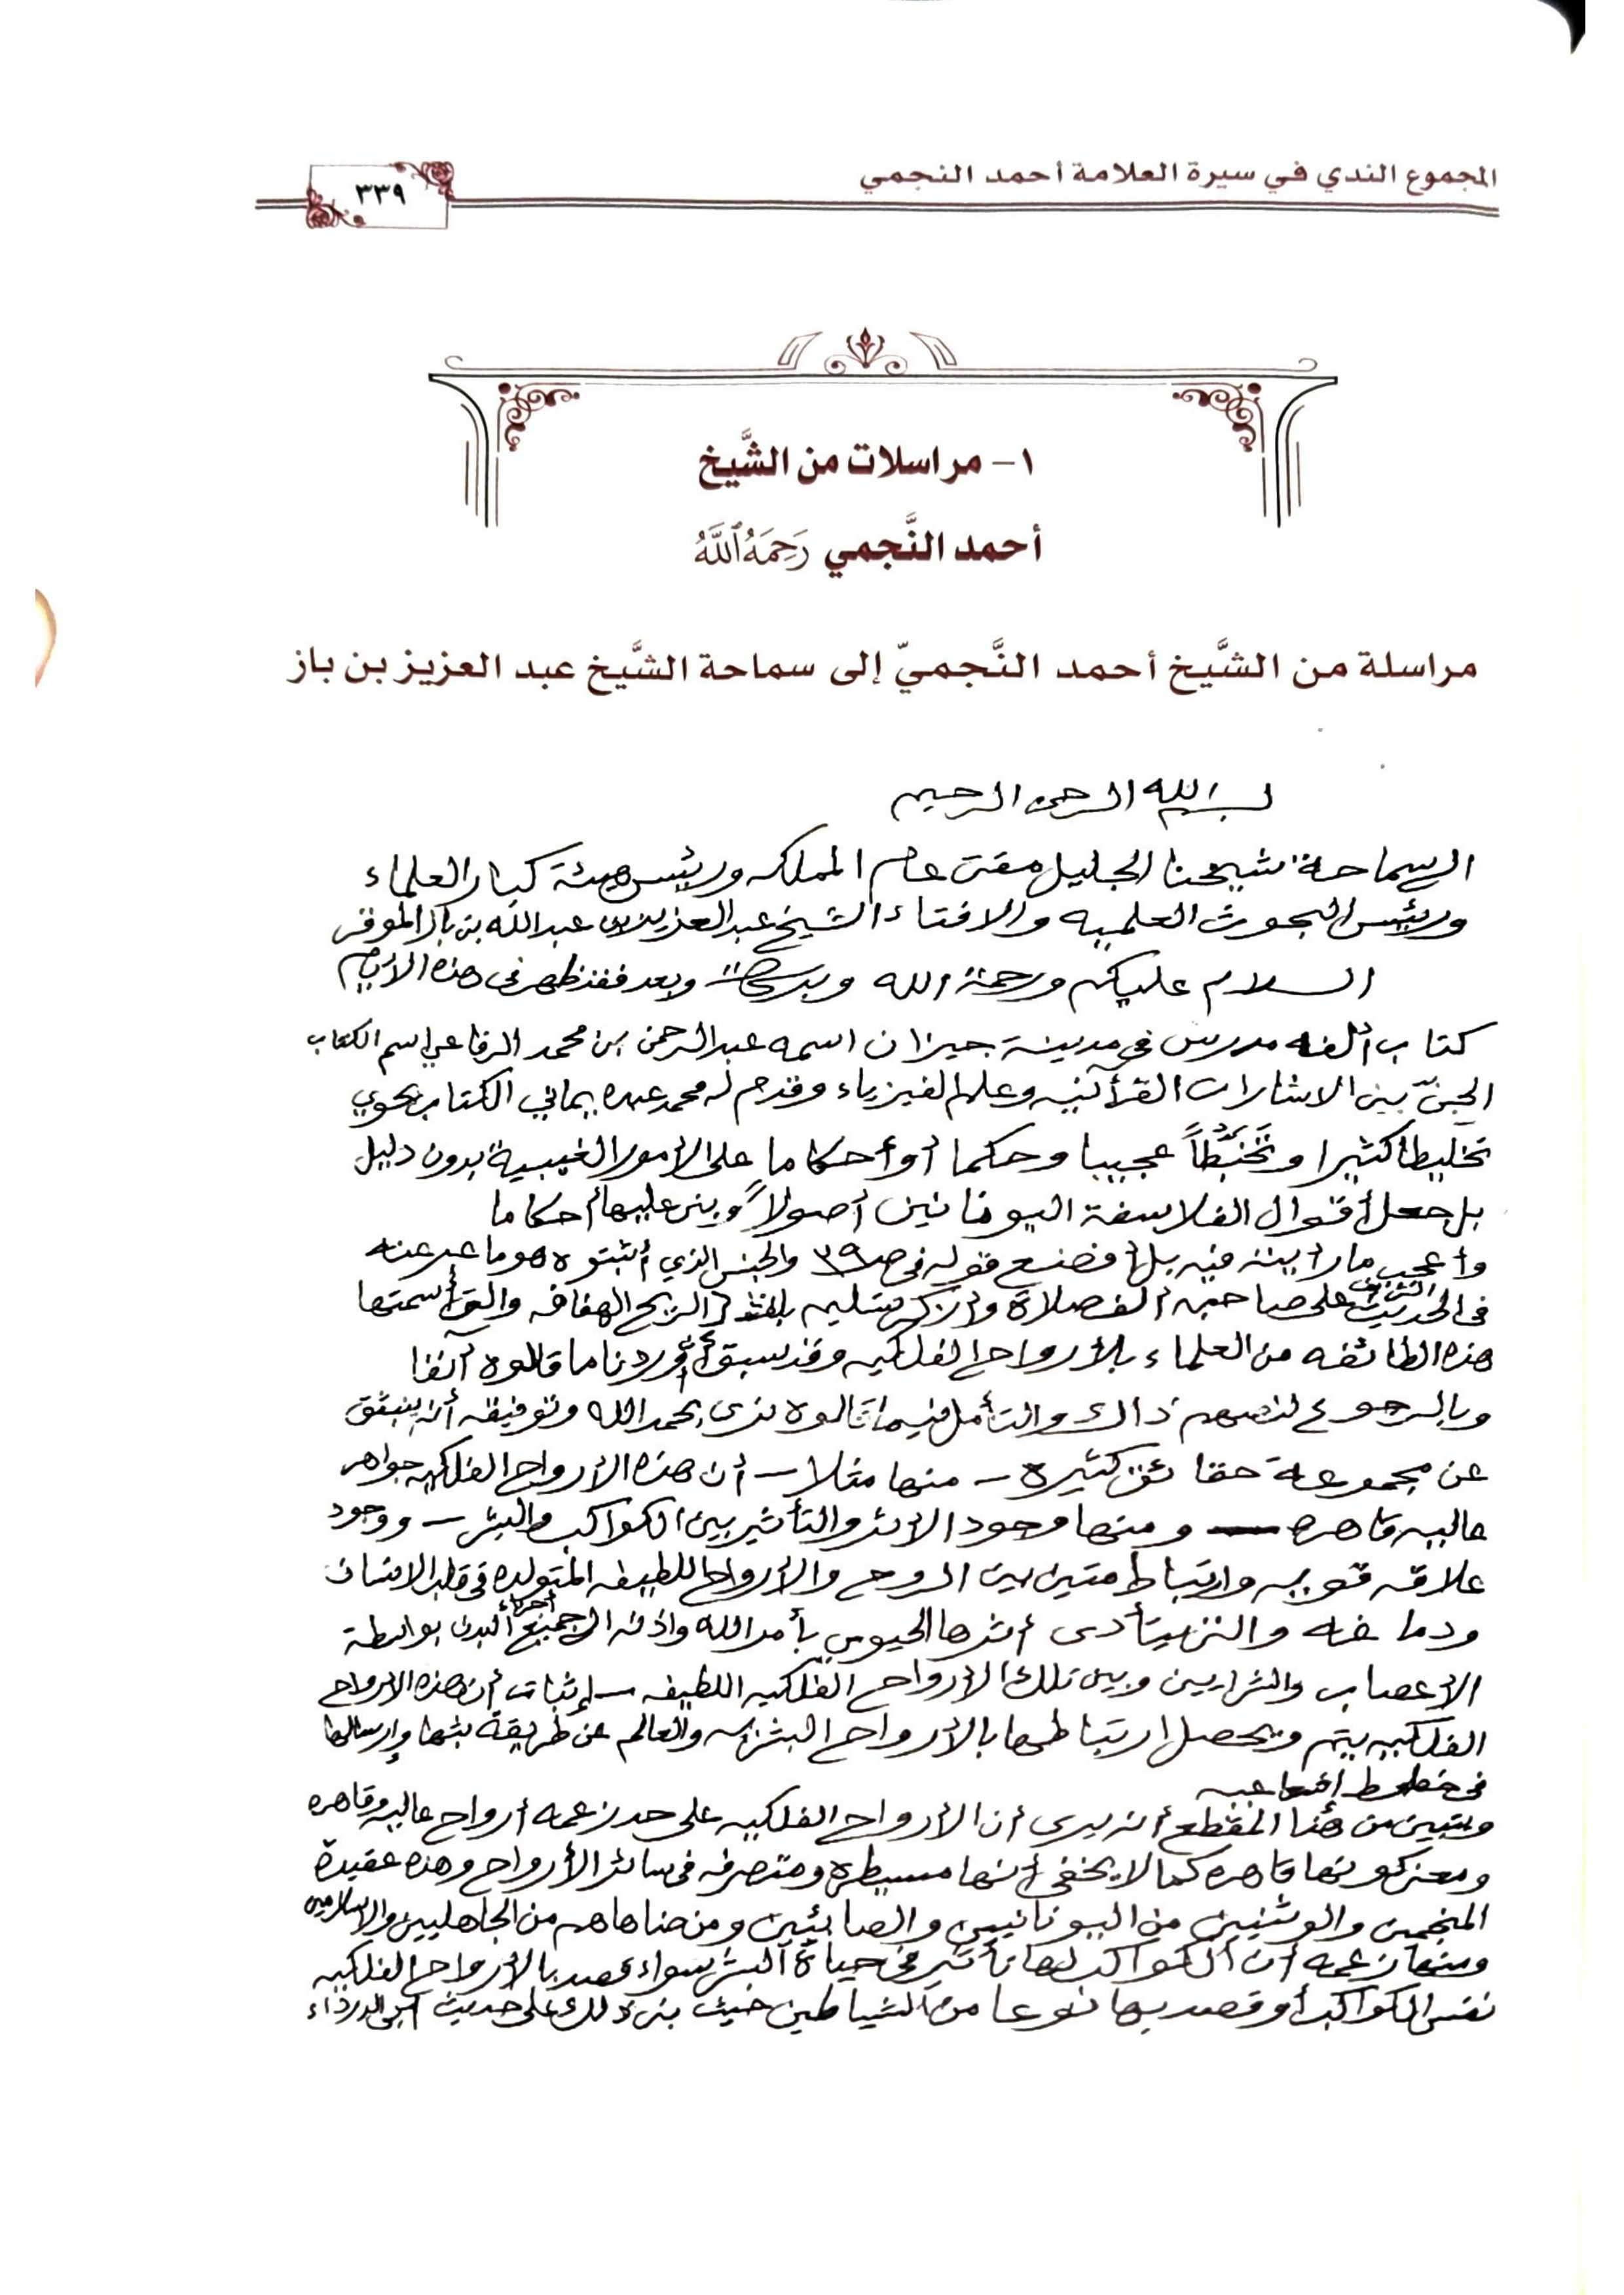 المجموع الندي في سيرة العلامة أحمد النجمي
٣٣٩
١- مراسلات من الشَّيخ
أحمد النَّجمي رَحِمَهُ ٱللَّهُ
مراسلة من الشَّيخ أحمد النَّجميّ إلى سماحة الشَّيخ عبد العزيز بن باز
بسم الله الرحمن الرحيم
إلى سماحة شيخنا الجليل مفتى عام المملكه ورئيس هيئة كبار العلماء
ورئيس البحوث العلميه والافتاء الشيخ عبد العزيز بن عبد الله بن باز الموقر
السلام عليكم ورحمة الله وبركاته وبعد فقد ظهر فى هذه الأيام
كتاب ألفه مدرس فى مدينة جيزان اسمه عبد الرحمن بن محمد الرفاعي اسم الكتاب
الجنّ بين الاشارات القرأنيه وعلم الفيزياء وقدم له محمد عبده يماني الكتاب يحوي
تخليطا كثيرا وتخبّطاً عجيبا وحكما أو أحكاما على الأمور الغيبية بدون دليل
بل جعل أقوال الفلاسفة اليونانين أصولاً وبنى عليها أحكاما
وأعجب ما رأيته فيه بل أفضع قوله فى ص٣٩ والجنس الذي أثبتوه هو ما عبر عنه
فى الحديث الشريف على صاحبه أفضل الصلاة وأزكى تسليم بلفظ (الريح الهفافه والتى أسمتها
هذه الطائفه من العلماء بالأرواح الفلكيه وقد سبق أن أوردنا ما قالوه آنفا
وبالرجوع لنصهم ذاك والتأمل فيما قالوه نرى بحمد الله وتوفيقه أنه ينبثق
عن مجموعة حقائق كثيرة – منها مثلا – أن هذه الأرواح الفلكيه جواهر
عاليه قاهره – ومنها وجود الأثر والتأثير بين الكواكب والبشر – ووجود
علاقه قويه وارتباط متين بين الروح والأرواح اللطيفه المتولده فى قلب الانسان
ودماغه والتى يتأدى أثرها الحيوي بأمر الله واذنه الى جميع أجزاء البدن بواسطة
الأعصاب والشرايين وبين تلك الأرواح الفلكيه اللطيفه – إثبات أن هذه الأرواح
الفلكيه يتم ويحصل ارتباطها بالأرواح البشريه والعالم عن طريقة بثها وإرسالها
فى خطوط إشعاعيه
ويتبين من هذا المقطع أنه يرى أن الأرواح الفلكيه على حد زعمه أرواح عاليه وقاهره
ومعنى كونها قاهره كما لا يخفى أنها مسيطرة ومتصرفه فى سائر الأرواح وهذه عقيدة
المنجمين والوثنيين من اليونانيين والصابئين ومن ضاهاهم من الجاهليين والاسلاميين
ومنها زعمه أن الكواكب لها تأثير فى حياة البشر سواء قصد بالأرواح الفلكيه
نفس الكواكب أو قصد بها نوعا من الشياطين حيث بنى ذلك على حديث أبى الدرداء